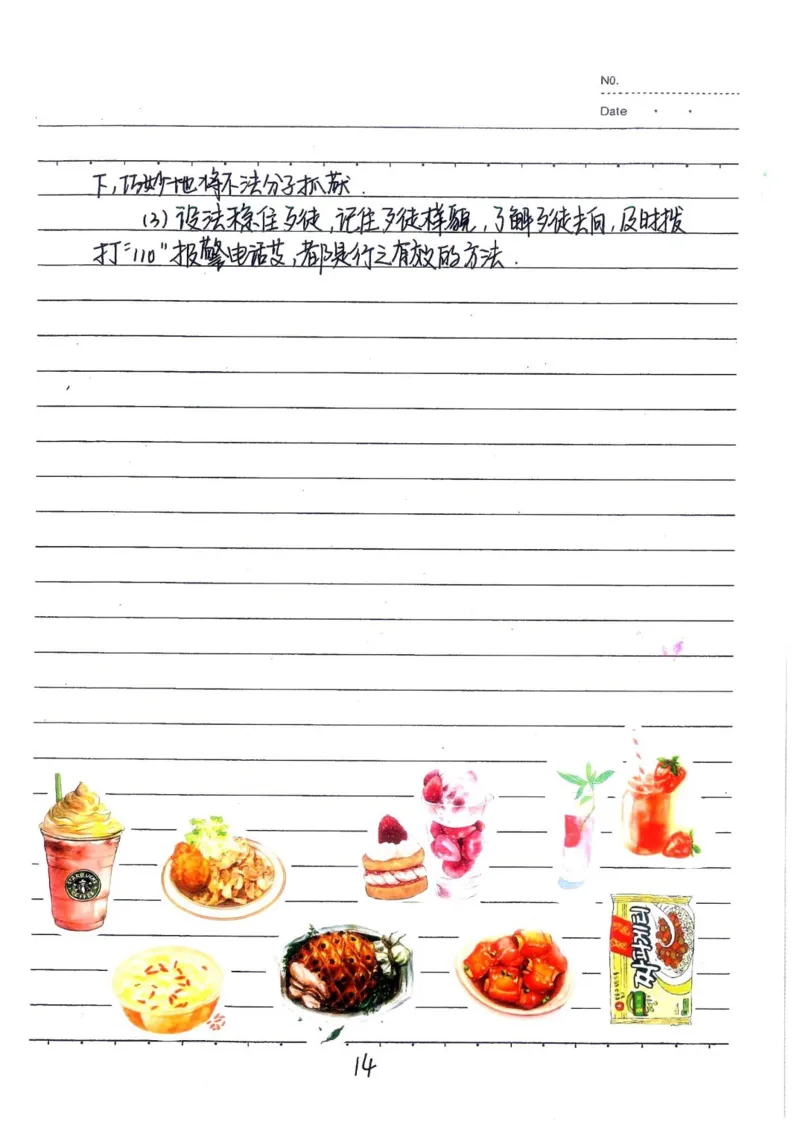 No.
Date
下,巧妙地将不法分子抓获.
(3)设法稳住歹徒,记住歹徒样貌,了解歹徒去向,及时拨
打"110"报警电话艾,都是行之有效的方法.
짜파게티
14